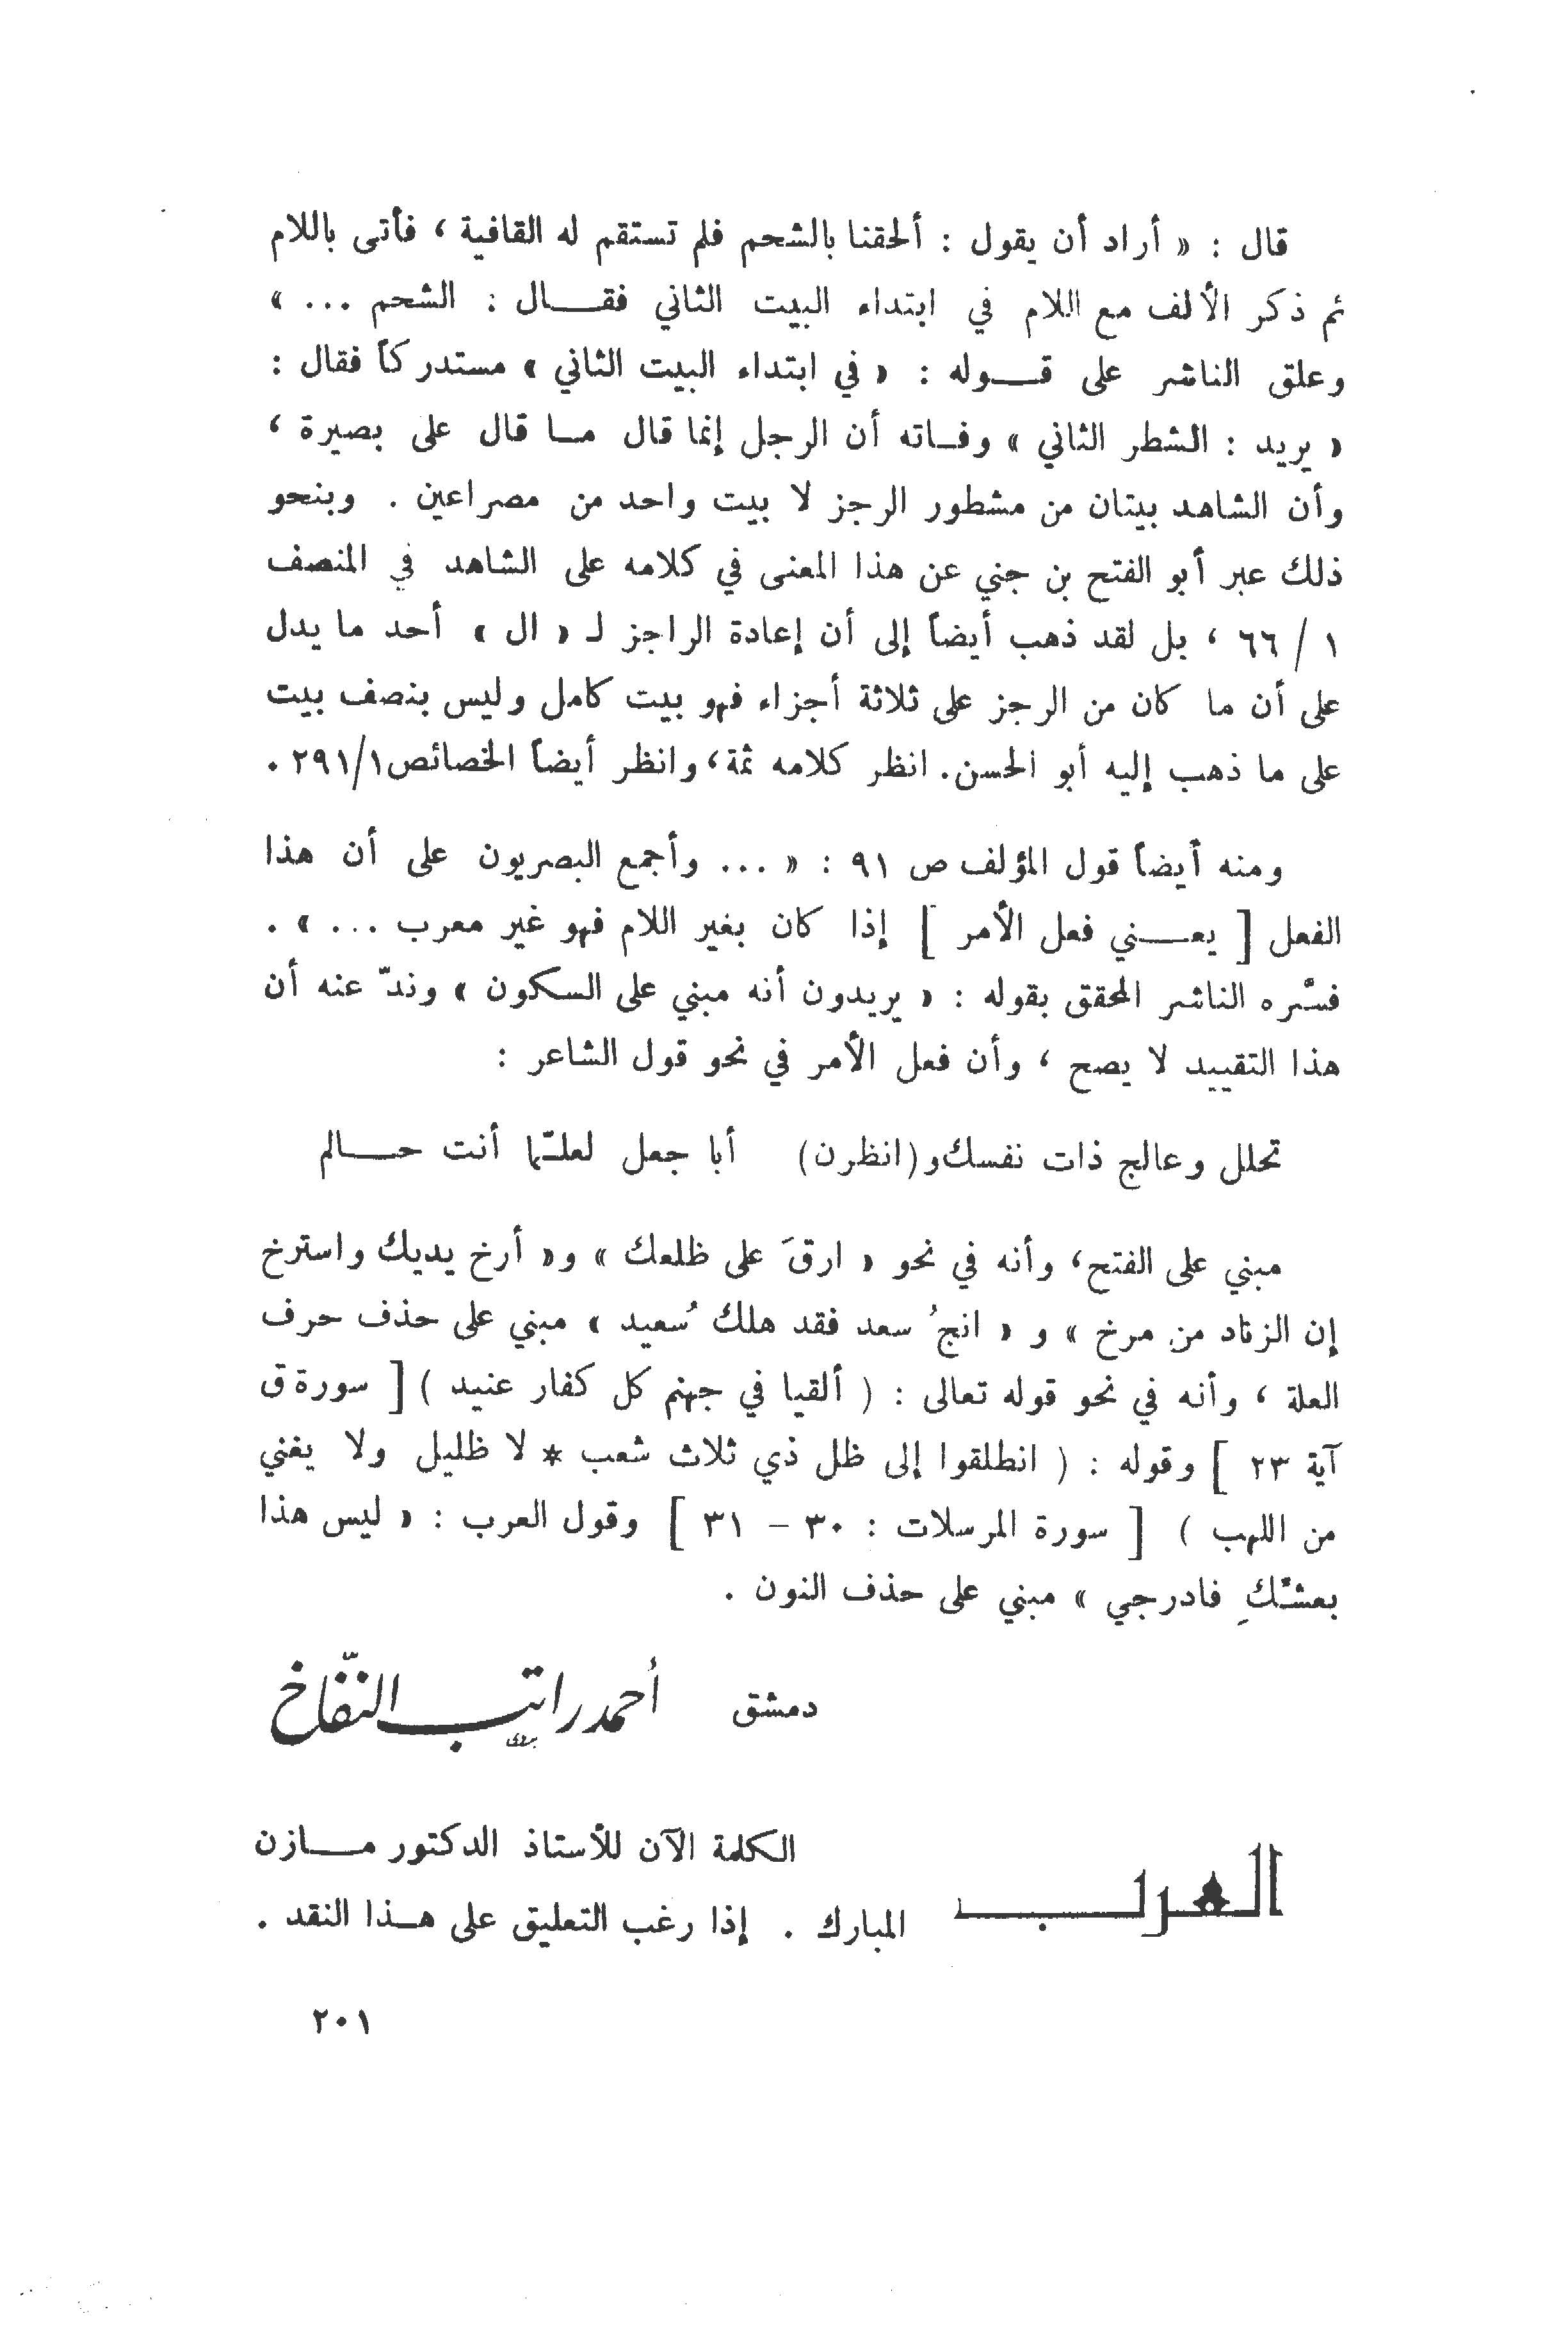 قال : « أراد أن يقول : ألحقنا بالشحم فلم تستقم له القافية ، فأتى باللام
ثم ذكر الألف مع اللام في ابتداء البيت الثاني فقـــال : الشحم ... »
وعلق الناشر على قـــوله : « في ابتداء البيت الثاني » مستدركاً فقال :
« يريد : الشطر الثاني » وفـاته أن الرجل إنما قال مـا قال على بصيرة ،
وأن الشاهد بيتان من مشطور الرجز لا بيت واحد من مصراعين . وبنحو
ذلك عبر أبو الفتح بن جني عن هذا المعنى في كلامه على الشاهد في المنصف
١ / ٦٦ ، بل لقد ذهب أيضاً إلى أن إعادة الراجز لـ « ال » أحد ما يدل
على أن ما كان من الرجز على ثلاثة أجزاء فهو بيت كامل وليس بنصف بيت
على ما ذهب إليه أبو الحسن. انظر كلامه ثمة، وانظر أيضاً الخصائص٢٩١/١ .
ومنه أيضاً قول المؤلف ص ٩١ : « ... وأجمع البصريون على أن هذا
الفعل [ يعـــني فعل الأمر ] إذا كان بغير اللام فهو غير معرب ... » .
فسّره الناشر المحقق بقوله : « يريدون أنه مبني على السكون » وندّ عنه أن
هذا التقييد لا يصح ، وأن فعل الأمر في نحو قول الشاعر :
تحلل وعالج ذات نفسك و(انظرن) أبا جعل لعلـّما أنت حـــالم
مبني على الفتح، وأنه في نحو « ارقَ على ظلعك » و« أرخ يديك واسترخ
إن الزناد من مرخ » و « انجُ سعد فقد هلك سُعيد » مبني على حذف حرف
العلة ، وأنه في نحو قوله تعالى : ( ألقيا في جهنم كل كفار عنيد ) [ سورة ق
آية ٢٣ ] وقوله : ( انطلقوا إلى ظل ذي ثلاث شعب * لا ظليل ولا يغني
من اللهب ) [ سورة المرسلات : ٣٠ – ٣١ ] وقول العرب : « ليس هذا
بعشّكِ فادرجي » مبني على حذف النون .
دمشق أحمد راتب النّفاخ
الكلمة الآن للأستاذ الدكتور مـــازن
العرب المبارك . إذا رغب التعليق على هـذا النقد .
٢٠١